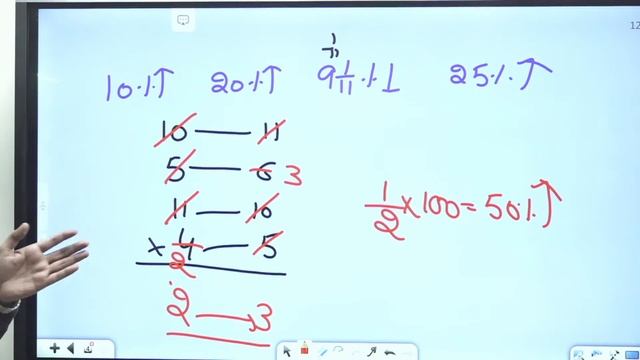 12
1/11
10%↑ 20%↑ 9 1/11 %↓ 25%↑
10 — 11
5 — 6 3
11 — 10
× 4 — 5
2
2 → 3
1/2 × 100 = 50%↑